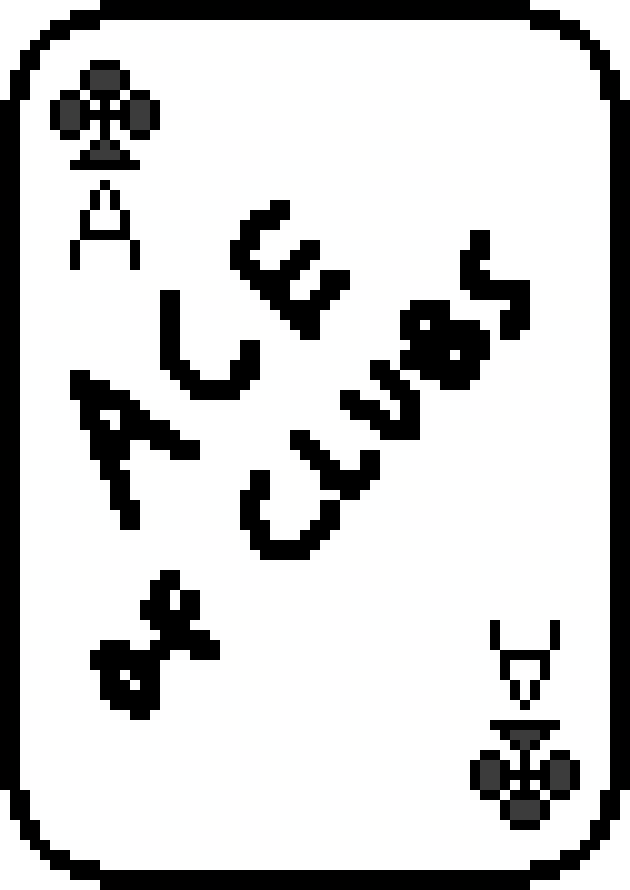 A
ACE
of CLUBS
A